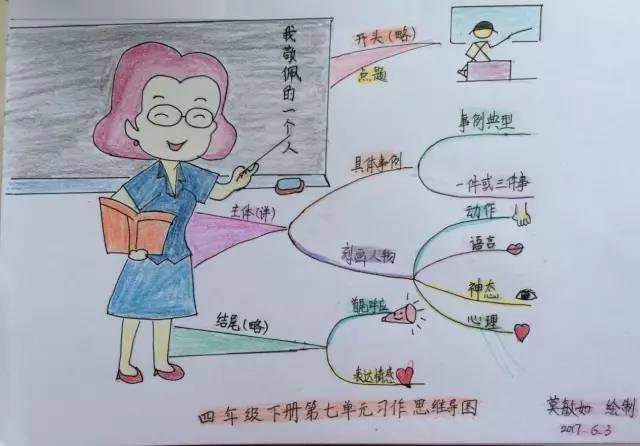 我敬佩的一个人
开头(略)
点题
主体(详)
具体事例
事例典型
一件或三件事
刻画人物
动作
语言
神态
心理
结尾(略)
首尾呼应
表达情感
四年级下册第七单元习作思维导图
莫敏如 绘制
2017.6.3